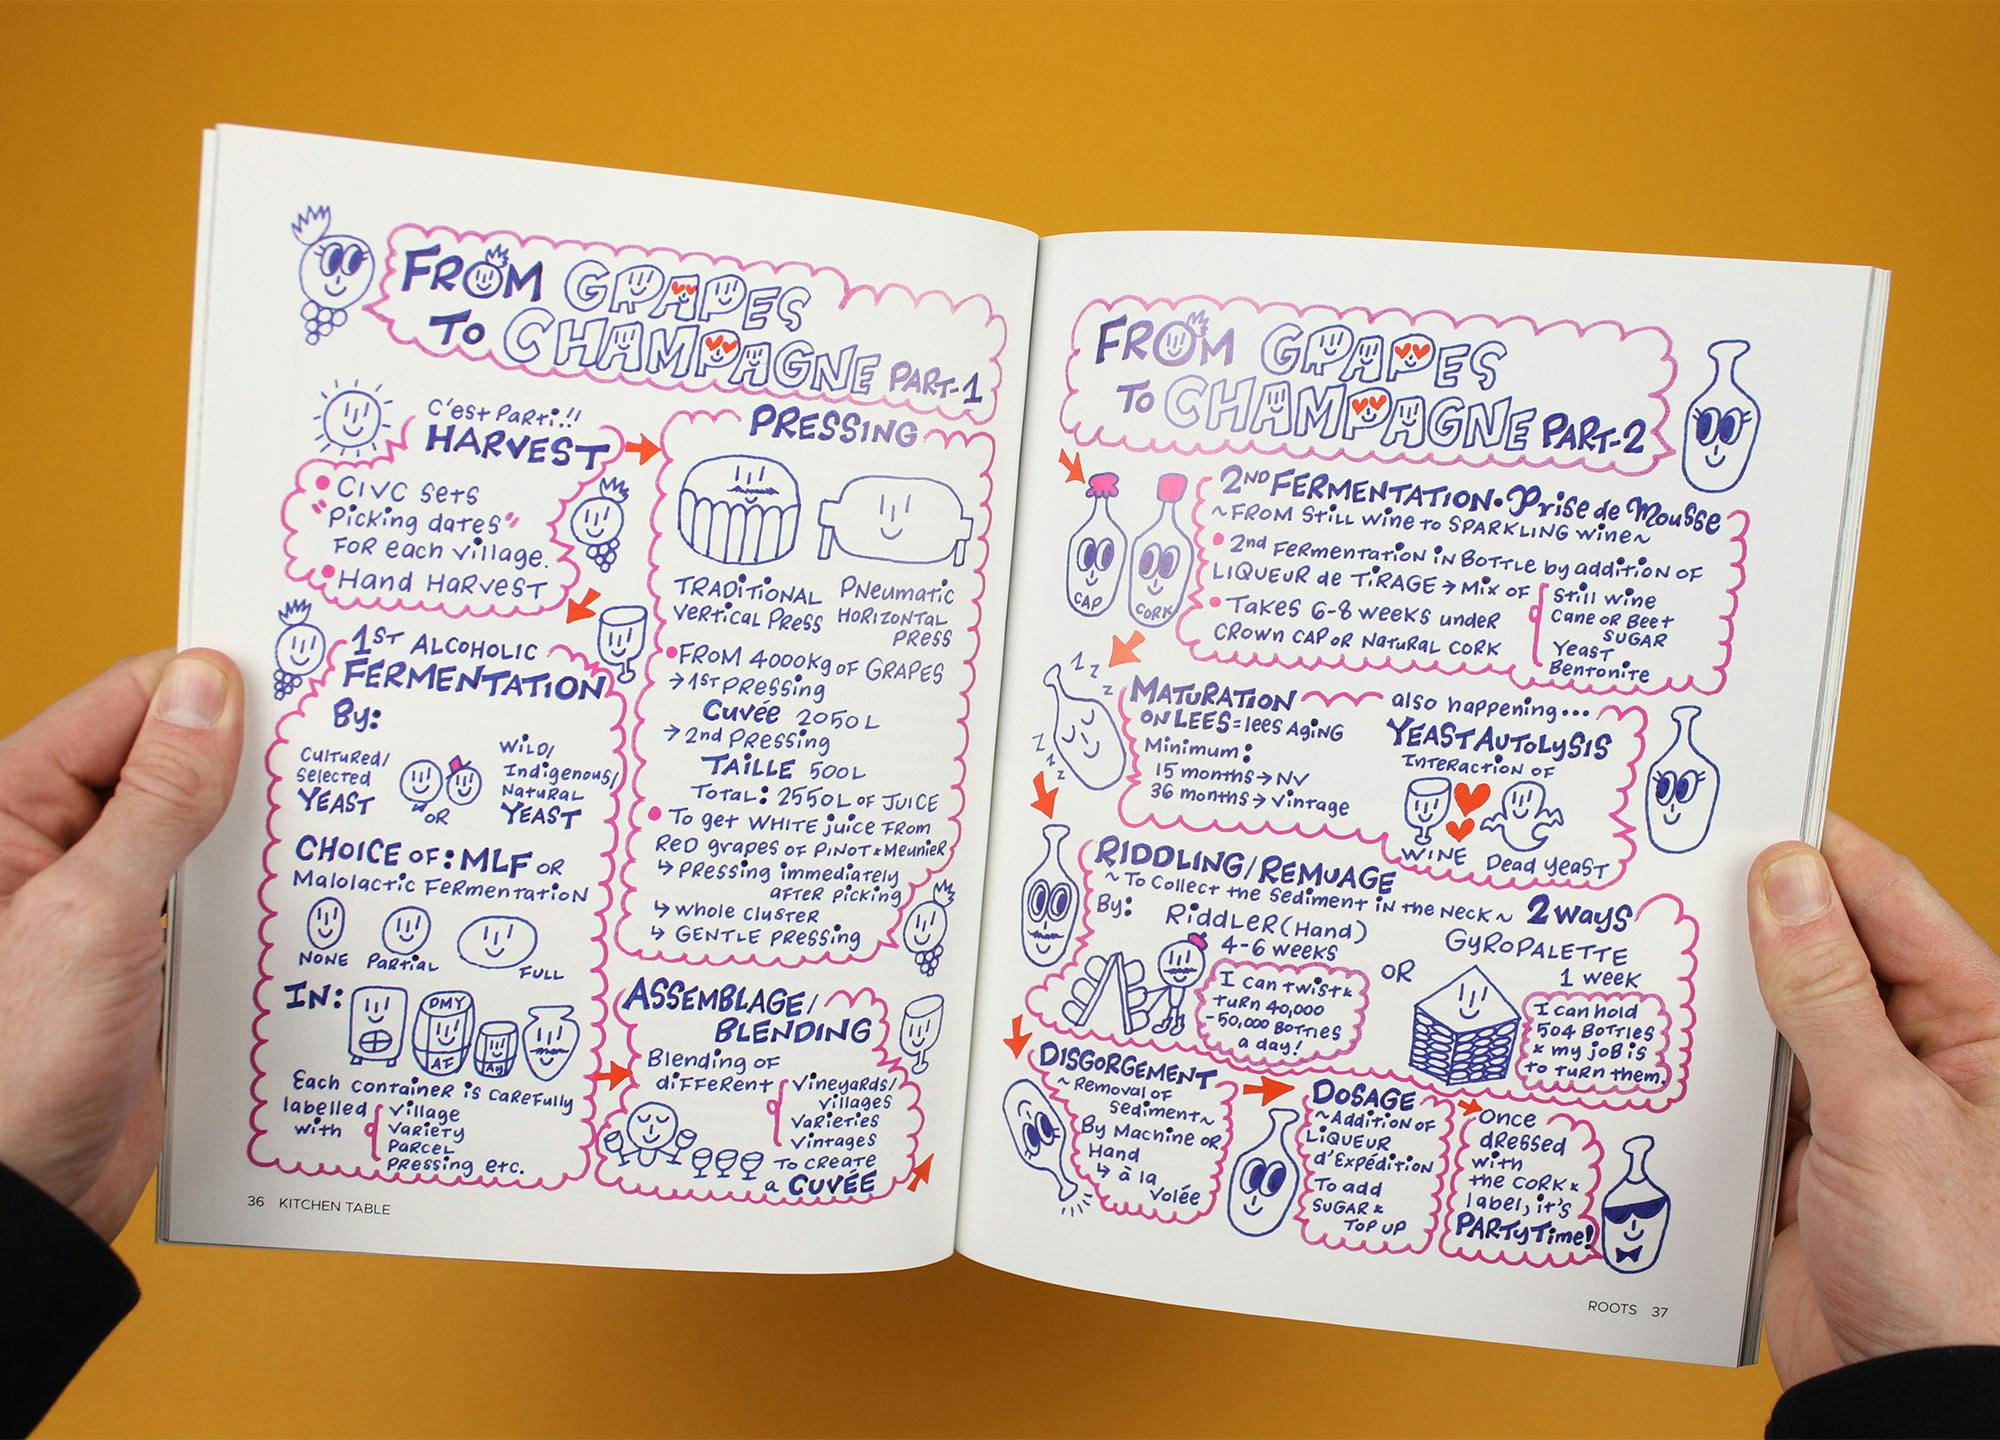 FROM GRAPES
TO CHAMPAGNE PART-1
C'est Parti!!
HARVEST
CIVC sets
"Picking dates"
FOR each village.
Hand HARVEST
1ST ALCOHOLIC
FERMENTATION
By:
CULTURED/
Selected
YEAST
OR
WILD/
Indigenous/
NATURAL
YEAST
CHOICE OF: MLF OR
Malolactic Fermentation
NONE
PARTIAL
FULL
IN:
DMY
AF
Ay
Each container is carefully
labelled
with
village
variety
parcel
pressing etc.
PRESSING
TRADITIONAL
Vertical Press
Pneumatic
HORIZONTAL
PRESS
FROM 4000kg OF GRAPES
→ 1ST Pressing
Cuvée 2050 L
→ 2nd Pressing
TAILLE 500L
Total: 2550L OF JUICE
To get WHITE juice FROM
RED grapes OF PINOT & Meunier
↳ Pressing immediately
AFTER Picking
↳ whole cluster
↳ GENTLE Pressing
ASSEMBLAGE/
BLENDING
Blending of
different
Vineyards/
Villages
Varieties
Vintages
To create
a CUVÉE
36 KITCHEN TABLE
FROM GRAPES
TO CHAMPAGNE PART-2
CAP
CORK
2ND FERMENTATION • Prise de Mousse
~FROM Still wine to SPARKLING wine~
2nd Fermentation in Bottle by addition OF
LIQUEUR de TIRAGE → Mix of
Still wine
Cane or Beet
SUGAR
Yeast
Bentonite
TAKES 6-8 weeks under
CROWN CAP OR NATURAL CORK
1 z z
z z z
MATURATION
ON LEES = lees Aging
Minimum:
15 months → NV
36 months → vintage
also happening...
YEAST AUTOLYSIS
INTERACTION OF
WINE
Dead yeast
RIDDLING/REMUAGE
~To Collect the Sediment in the Neck~ 2 ways
By:
RiddLER (Hand)
4-6 weeks
I can twist &
turn 40,000
-50,000 BOTTLES
a day!
OR
GYROPALETTE
1 week
I can hold
504 BOTTLES
& my job is
to turn them.
DISGORGEMENT
~Removal of
Sediment~
By Machine OR
Hand
↳ à la
Volée
DOSAGE
~Addition of
LiQUEUR
d'Expédition
To add
SUGAR &
TOP UP
Once
dressed
with
the CORK &
label, it's
PARTY Time!
ROOTS 37